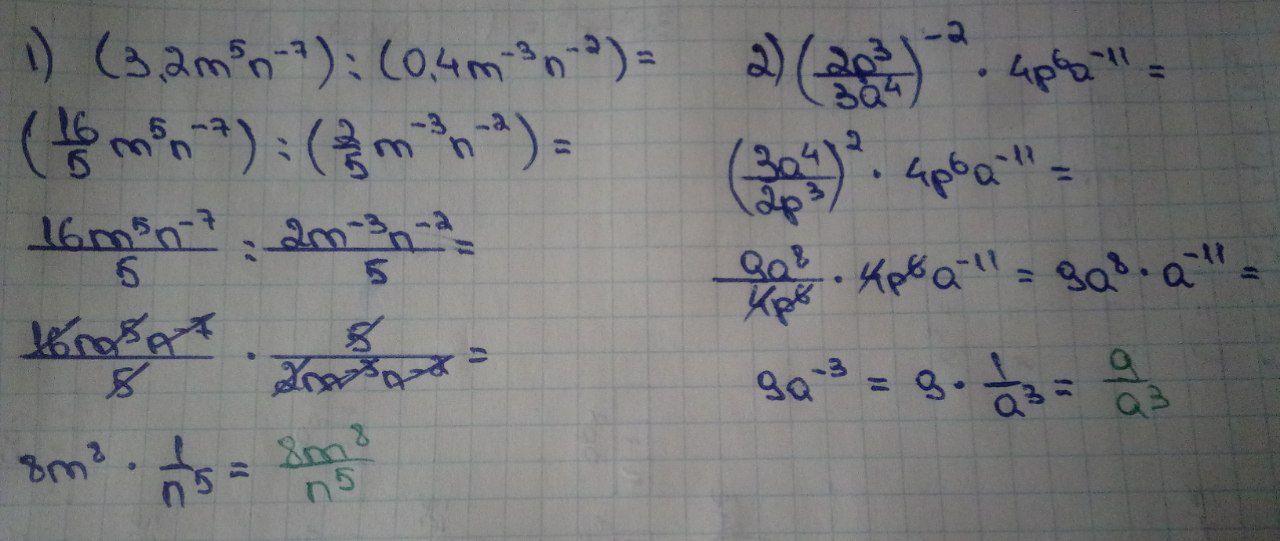 1) (3,2m⁵n⁻⁷) : (0,4m⁻³n⁻²) =
(16/5 m⁵n⁻⁷) : (2/5 m⁻³n⁻²) =
16m⁵n⁻⁷/5 : 2m⁻³n⁻²/5 =
16m⁵n⁻⁷/5 · 5/2m⁻³n⁻² =
8m⁸ · 1/n⁵ = 8m⁸/n⁵
2) (2p³/3a⁴)⁻² · 4p⁶a⁻¹¹ =
(3a⁴/2p³)² · 4p⁶a⁻¹¹ =
9a⁸/4p⁶ · 4p⁶a⁻¹¹ = 9a⁸ · a⁻¹¹ =
9a⁻³ = 9 · 1/a³ = 9/a³